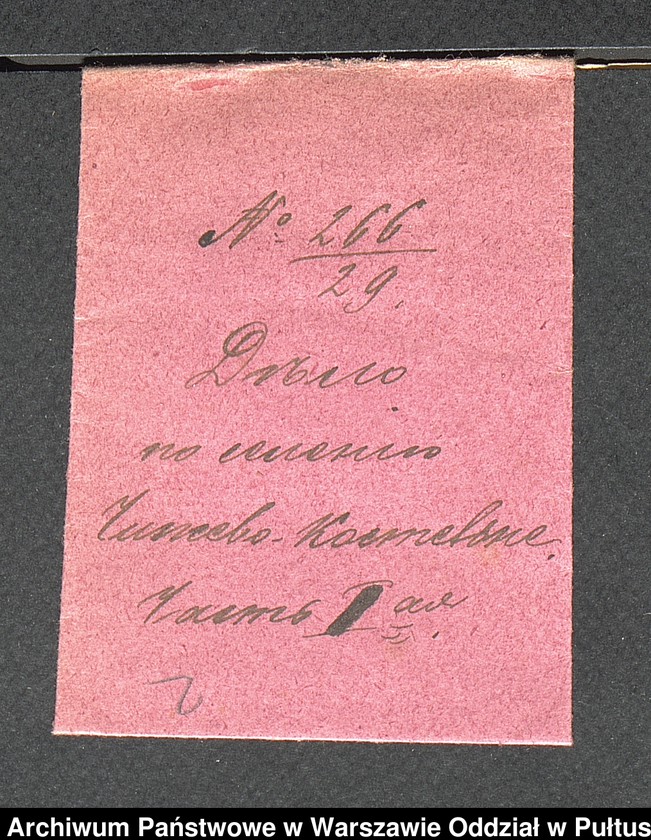 № 266
29.
Дѣло
по селенію
Чижево-Костевѣне.
Часть I ая.
2
Archiwum Państwowe w Warszawie Oddział w Pułtus